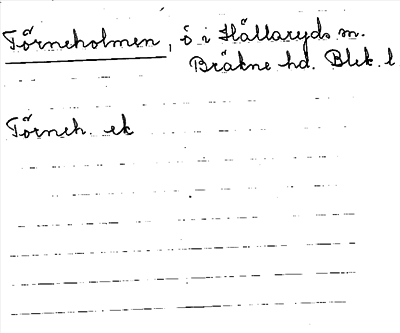 Törneholmen, ö i Hällaryds sn.
Bräkne hd. Blek. l
Törneh. ek